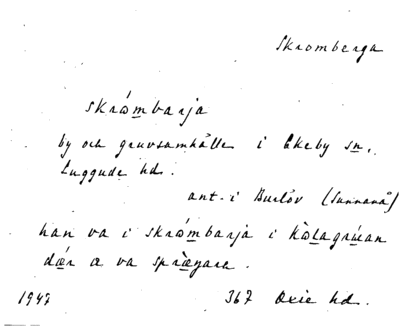 Skromberga
skrómbarja
by och gruvsamhälle i Ekeby sn,
Luggude hd.
ant. i Burlöv (Sunnanå)
han va i skrómbarja i kòlagrúan
dær a va sprægara.
1947 367 Oxie hd.